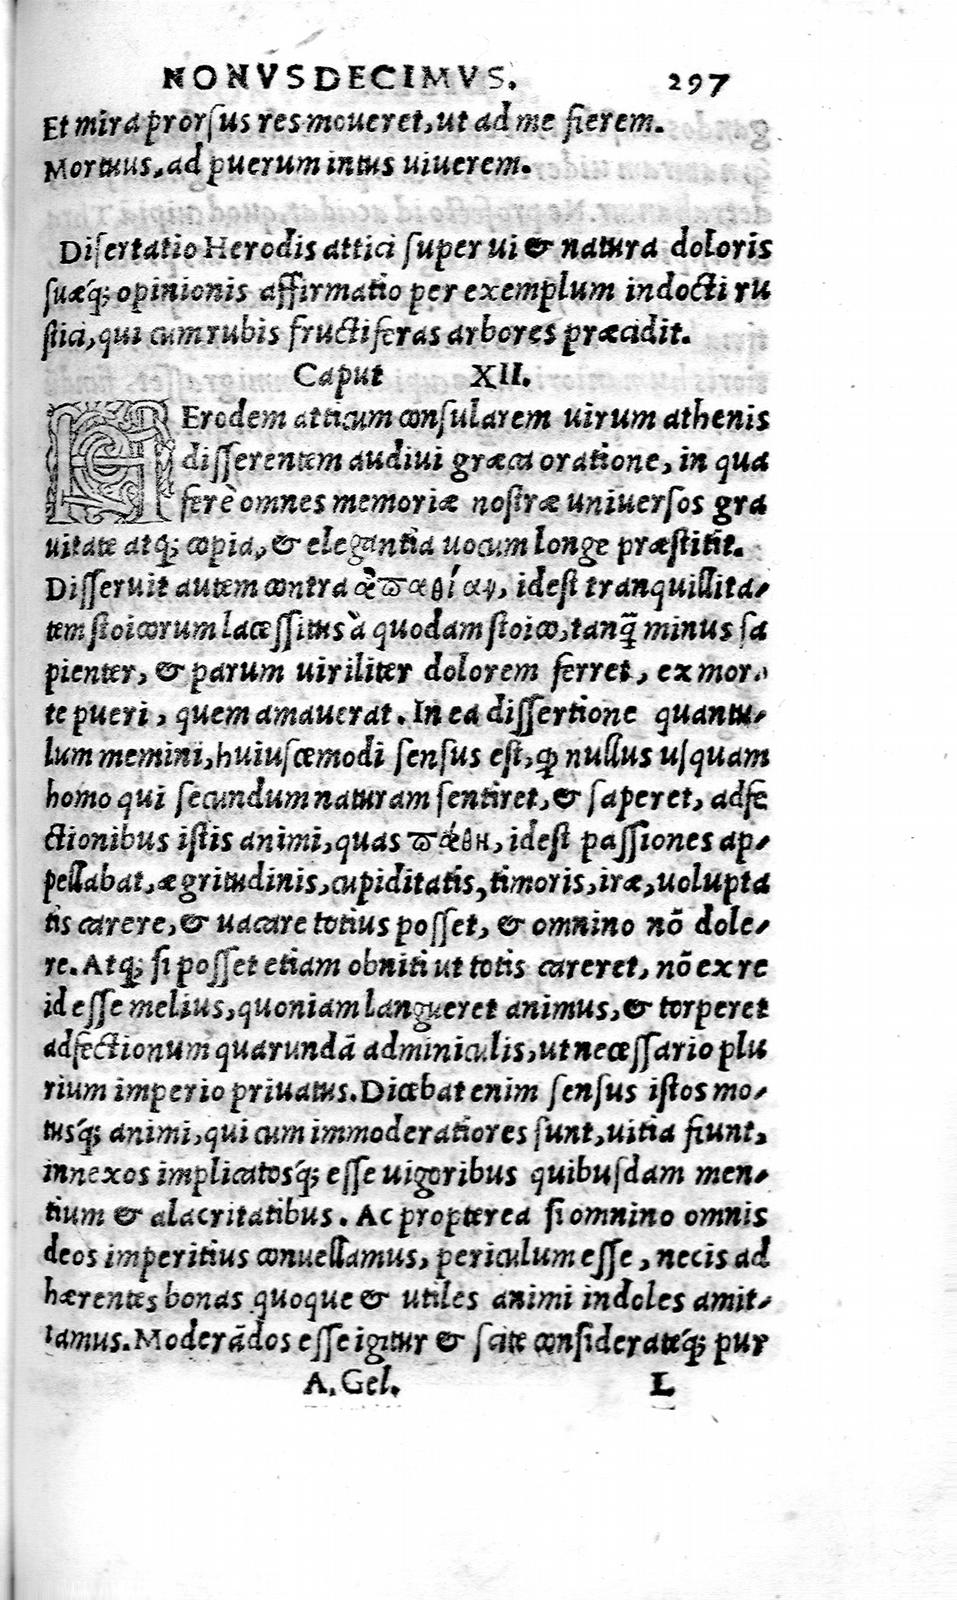 NONVSDECIMVS. 297
Et mira prorſus res moueret, ut ad me fierem.
Mortuus, ad puerum intus uiuerem.
Diſertatio Herodis attici ſuper ui & natura doloris
ſuæq́; opinionis affirmatio per exemplum indocti ru
ſtici, qui cum rubis fructiferas arbores præcidit.
Caput XII.
HErodem atticum conſularem uirum athenis
diſſerentem audiui græca oratione, in qua
ferè omnes memoriæ noſtræ uniuerſos gra
uitate atq; copia, & elegantia uocum longe præſtitit.
Diſſeruit autem contra ἀϖαθίαν, ideſt tranquillita-
tem ſtoicorum laceſſitus à quodam ſtoico, tanq̃ minus ſa
pienter, & parum uiriliter dolorem ferret, ex mor-
te pueri, quem amauerat. In ea diſſertione quantu-
lum memini, huiuſcemodi ſenſus eſt, ꝙ nullus uſquam
homo qui ſecundum naturam ſentiret, & ſaperet, adfe
ctionibus iſtis animi, quas ϖάθη, ideſt paſſiones ap-
pellabat, ægritudinis, cupiditatis, timoris, iræ, uolupta
tis carere, & uacare totius poſſet, & omnino nō dole-
re. Atq; ſi poſſet etiam obniti ut totis careret, nō ex re
id eſſe melius, quoniam langueret animus, & torperet
adfectionum quarundā adminiculis, ut neceſſario plu
rium imperio priuatus. Dicebat enim ſenſus iſtos mo-
tusq́; animi, qui cum immoderatiores ſunt, uitia fiunt,
innexos implicatosq́; eſſe uigoribus quibuſdam men-
tium & alacritatibus. Ac propterea ſi omnino omnis
deos imperitius conuellamus, periculum eſſe, necis ad
hærentes bonas quoque & utiles animi indoles amit-
tamus. Moderādos eſſe igitur & ſcite conſiderateq́; pur
A. Gel. L